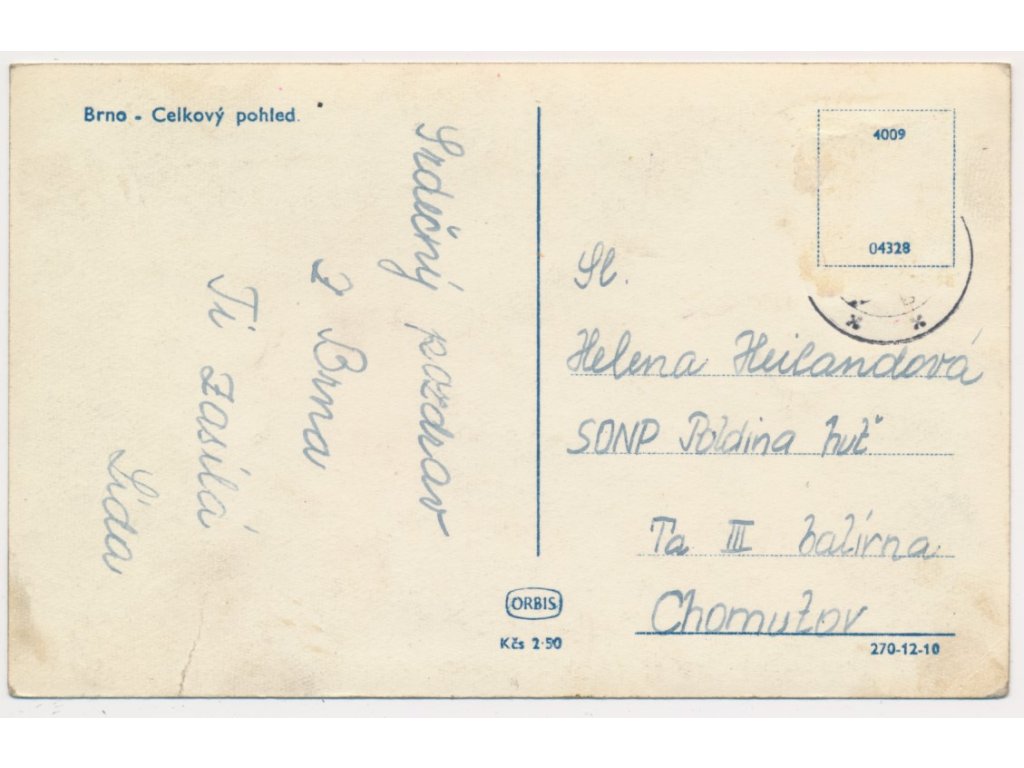 Brno - Celkový pohled.
Srdečný pozdrav
z Brna
Ti zasílá
Lída
4009
04328
Sl.
Helena Heilandová
SONP Poldina huť
Ta III balírna
Chomutov
ORBIS
Kčs 2·50
270-12-10